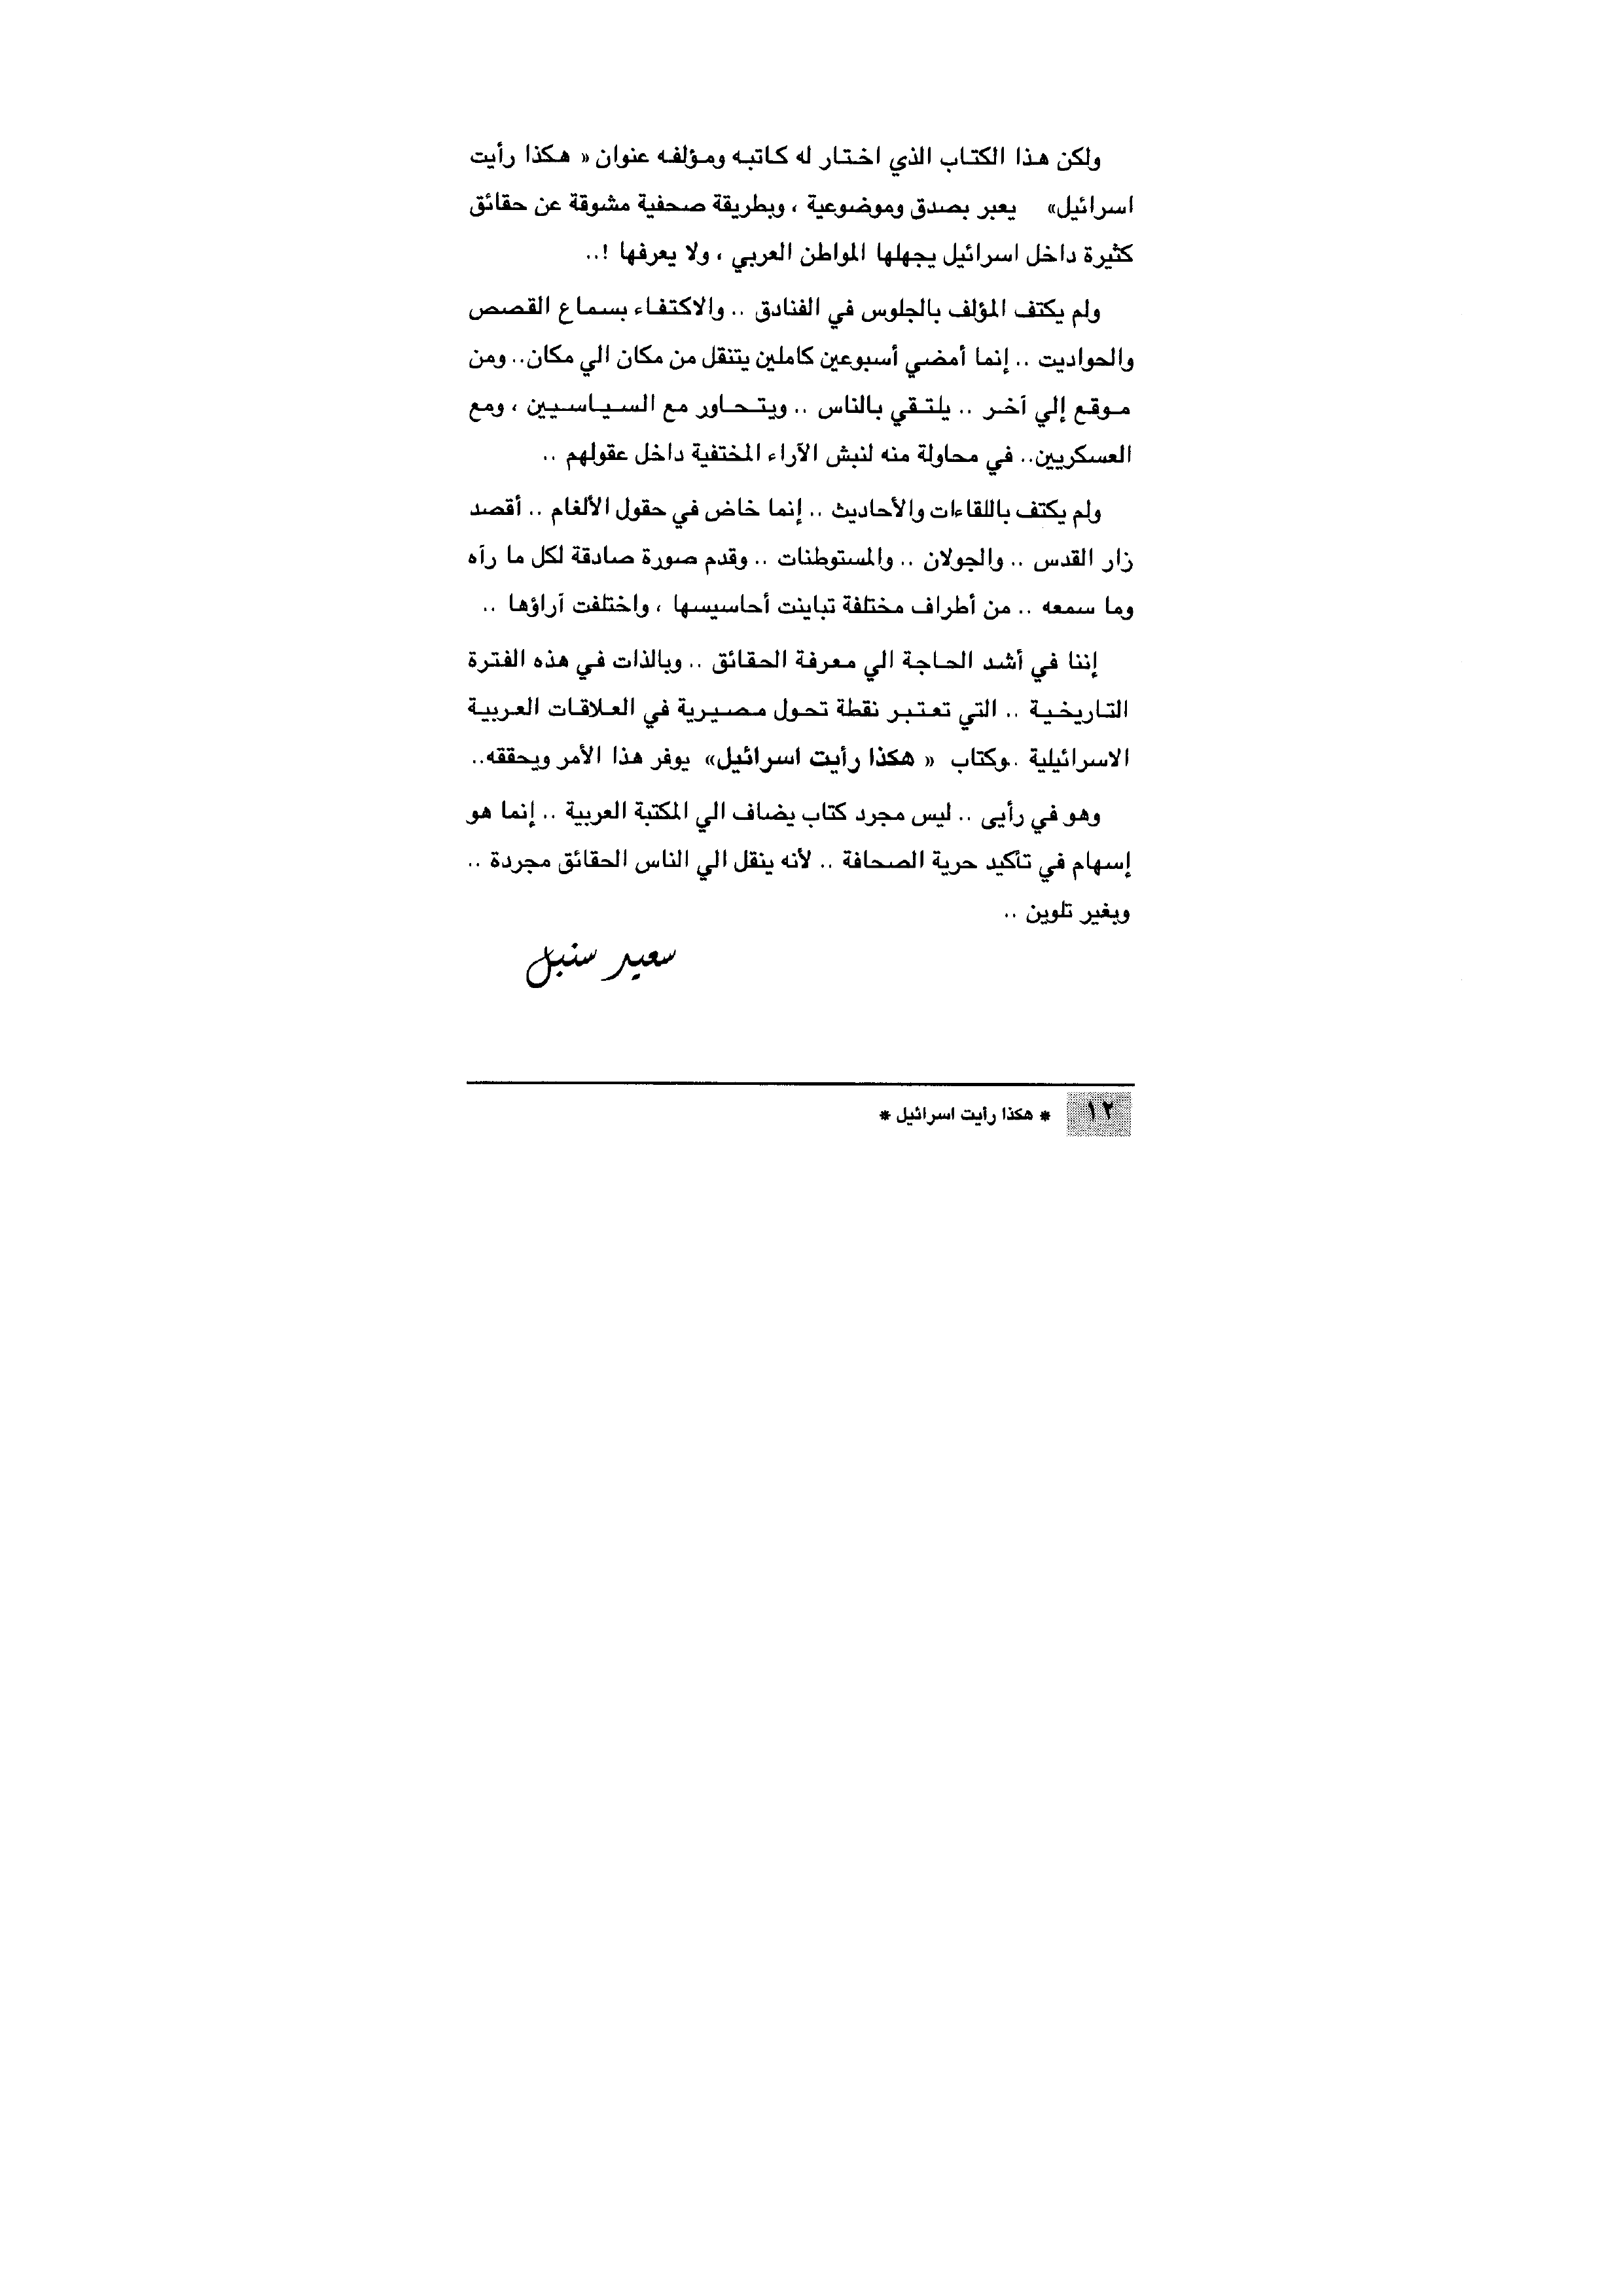 ولكن هذا الكتاب الذي اختار له كاتبه ومؤلفه عنوان « هكذا رأيت
اسرائيل» يعبر بصدق وموضوعية ، وبطريقة صحفية مشوقة عن حقائق
كثيرة داخل اسرائيل يجهلها المواطن العربي ، ولا يعرفها !..
ولم يكتف المؤلف بالجلوس في الفنادق .. والاكتفاء بسماع القصص
والحواديت .. إنما أمضي أسبوعين كاملين يتنقل من مكان الي مكان.. ومن
موقع إلي آخر .. يلتقي بالناس .. ويتحاور مع السياسيين ، ومع
العسكريين.. في محاولة منه لنبش الآراء المختفية داخل عقولهم ..
ولم يكتف باللقاءات والأحاديث .. إنما خاض في حقول الألغام .. أقصد
زار القدس .. والجولان .. والمستوطنات .. وقدم صورة صادقة لكل ما رآه
وما سمعه .. من أطراف مختلفة تباينت أحاسيسها ، واختلفت آراؤها ..
إننا في أشد الحاجة الي معرفة الحقائق .. وبالذات في هذه الفترة
التاريخية .. التي تعتبر نقطة تحول مصيرية في العلاقات العربية
الاسرائيلية ..وكتاب « هكذا رأيت اسرائيل» يوفر هذا الأمر ويحققه..
وهو في رأيى .. ليس مجرد كتاب يضاف الي المكتبة العربية .. إنما هو
إسهام في تأكيد حرية الصحافة .. لأنه ينقل الي الناس الحقائق مجردة ..
وبغير تلوين ..
سعيد سنبل
١٢ * هكذا رأيت اسرائيل *